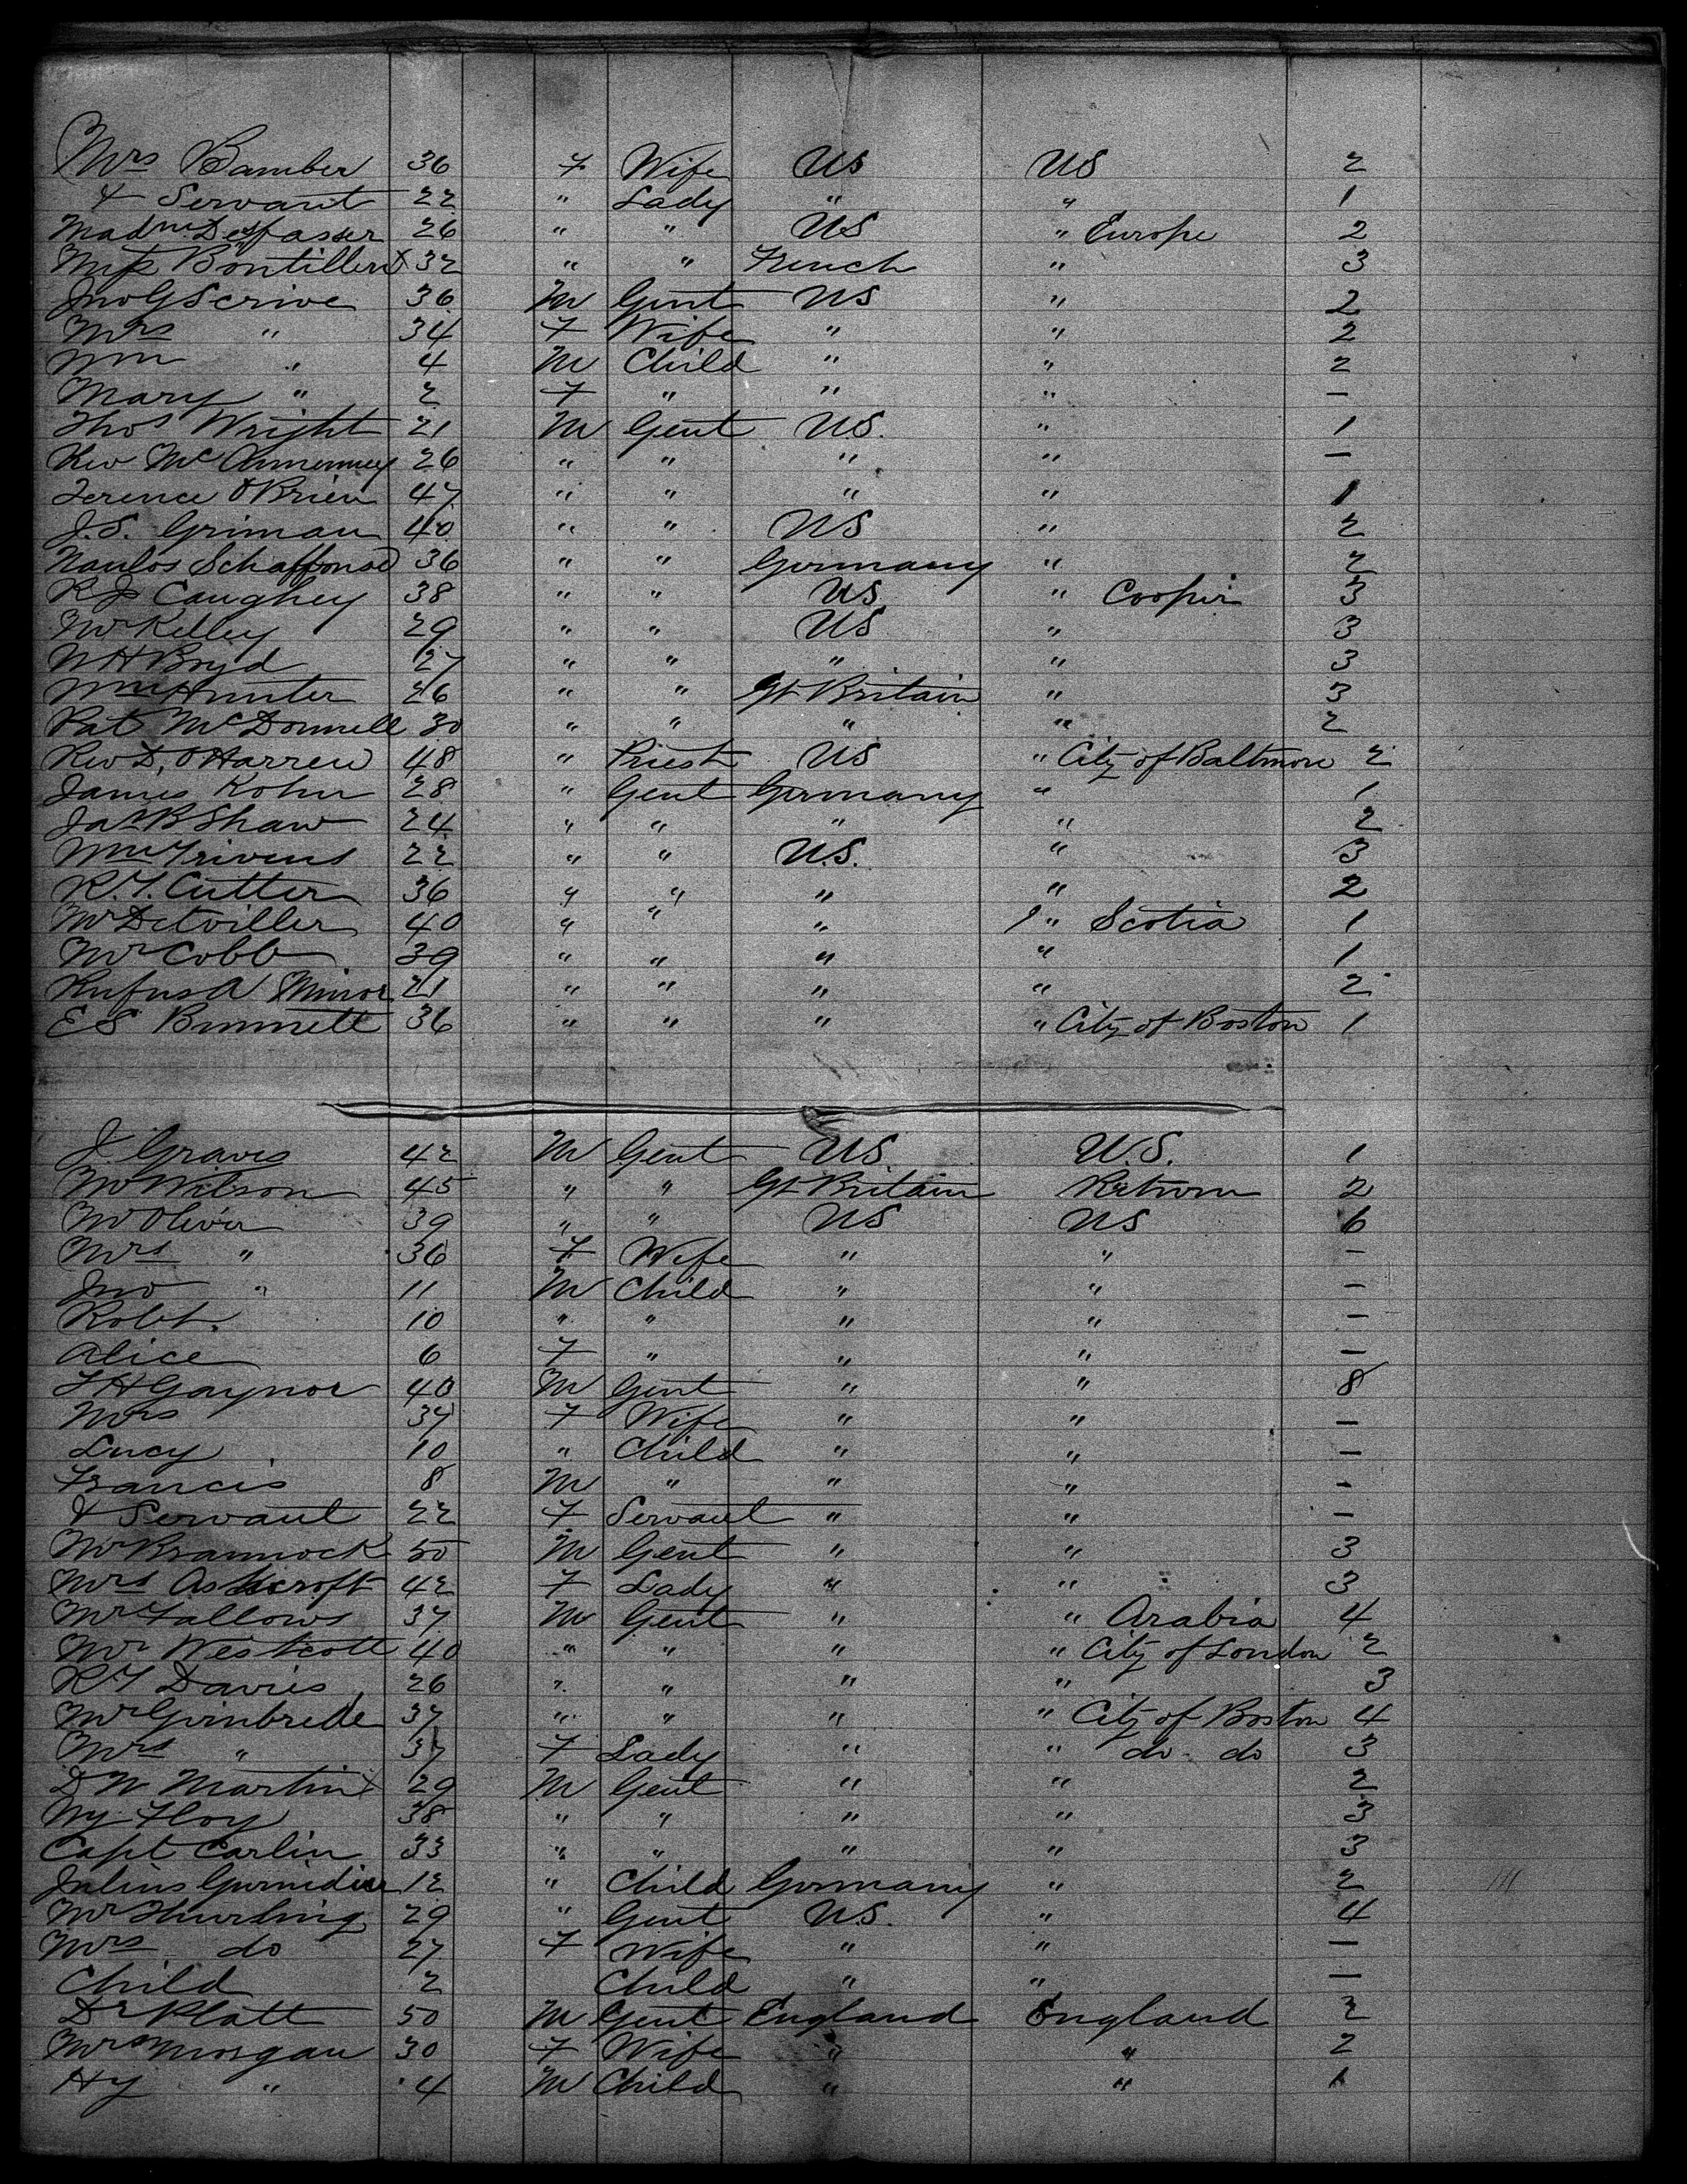 Mrs Bamber 36 F Wife US US 2
& Servant 22 " Lady " " 1
Madme 26 " " US " Europe 2
Miss Bontillert 32 " " French " 3
Jno G Scrive 36 M Gent US " 2
Mrs " 34 F Wife " " 2
Wm " 4 M Child " " 2
Mary " 2 F " " " —
Thos Wright 21 M Gent U.S. " 1
Rev Mc 26 " " " " —
Terence O'Brien 47 " " " " 1
J.S. Griman 40 " " US " 2
36 " " Germany " 2
R J Caughey 38 " " US " Cooper 3
Mr Kelley 29 " " US " 3
W H Boyd 27 " " " " 3
Wm Hunter 26 " " Gt Britain " 3
Pat McDonnell 30 " " " " 2
Rev D. O'Harren 48 " Priest US " City of Baltmore 2
James Kohn 28 " Gent Germany " 1
Jas B Shaw 24 " " " " 2
Wm Frivens 22 " " U.S. " 3
R.T. Cutter 36 " " " " 2
Mr Detviller 40 " " " " Scotia 1
Mr Cobb 39 " " " " 1
Rufus A Minor 21 " " " " 2
E S Bunnett 36 " " " " City of Boston 1
J. Graves 42 M Gent US U.S. 1
Mr Wilson 45 " " Gt Britain Return 2
Mr Oliver 39 " " US US 6
Mrs " 36 F Wife " " —
Jno " 11 M Child " " —
Robt. 10 " " " " —
Alice 6 F " " " —
T H Gaynor 40 M Gent " " 8
Mrs 37 F Wife " " —
Lucy 10 " Child " " —
Francis 8 M " " " —
& Servant 22 F Servant " " —
Mr Brannock 50 M Gent " " 3
Mrs Ashcroft 42 F Lady " " 3
Mr Fallows 37 M Gent " " Arabia 4
Mr Westcott 40 " " " " City of London 2
R T Davies 26 " " " " 3
Mr Gimbrede 37 " " " " City of Boston 4
Mrs " 37 F Lady " " do do 3
D W Martin 29 M Gent " " 2
Wy Floy 38 " " " " 3
Capt Carlin 33 " " " " 3
Julius 12 " Child Germany " 2
Mr Thurling 29 " Gent U.S. " 4
Mrs do 27 F Wife " " —
Child 2 Child " " —
Dr Platt 50 M Gent England England 2
Mrs Morgan 30 F Wife " " 2
Hy " 4 M Child " " 1